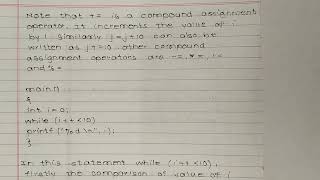 Note that += is a compound assignment
operator. It increments the value of i
by 1. Similarly j=j+10 can also be
written as j+=10. other compound
assignment operators are -=, *=, /=
and %=
main()
{
int i=0;
while (i++<10)
printf("%d\n", i);
}
In this statement while (i++<10),
firstly the comparison of value of i